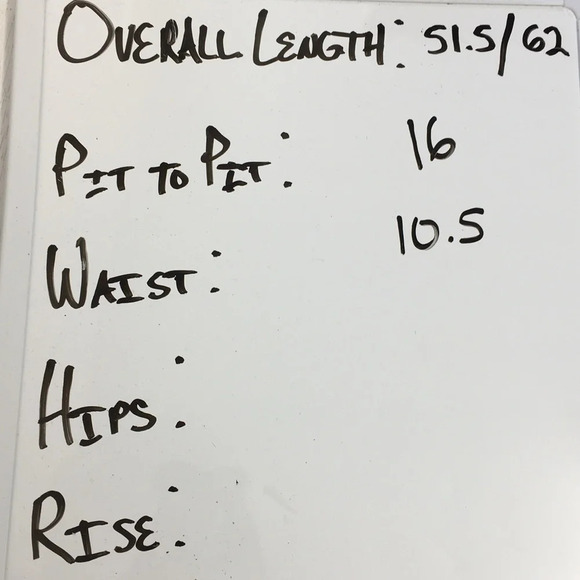 OVERALL LENGTH: 51.5/62
PIT TO PIT: 16
WAIST: 10.5
HIPS:
RISE: